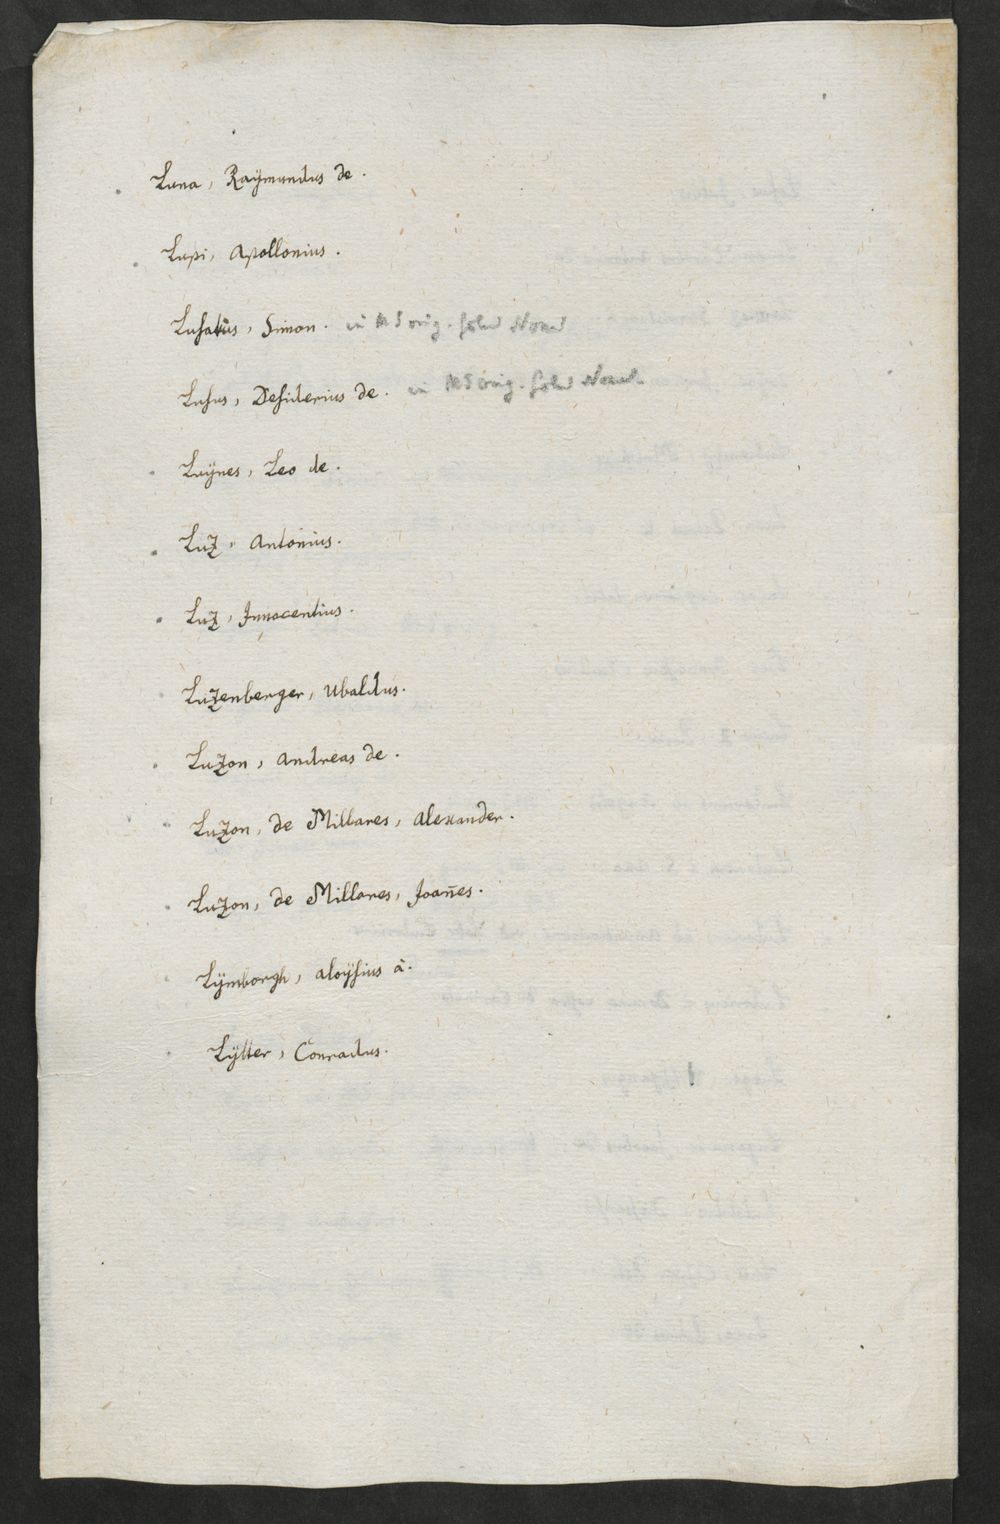 Luna, Raÿmundus de.
Lupi, Apollonius.
Lusatus, Simon. in MS orig.
Lusus, Desiderius de. in MS orig.
Luÿnes, Leo de.
Luz, Antonius.
Luz, Innocentius.
Luzenberger, Ubaldus.
Luzon, Andreas de.
Luzon, de Millares, Alexander.
Luzon, de Millares, Joan̄es.
Lÿmborgh, Aloÿsius à.
Lÿtter, Conradus.